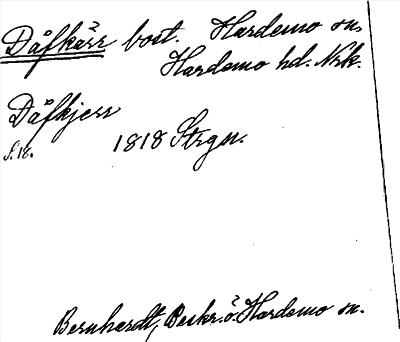 Dåfkärr bost. Hardemo sn,
Hardemo hd. Nrk.
Dåfkjerr
S. 18. 1818 Strgn.
Bernhardt, Beskr. ö. Hardemo sn.